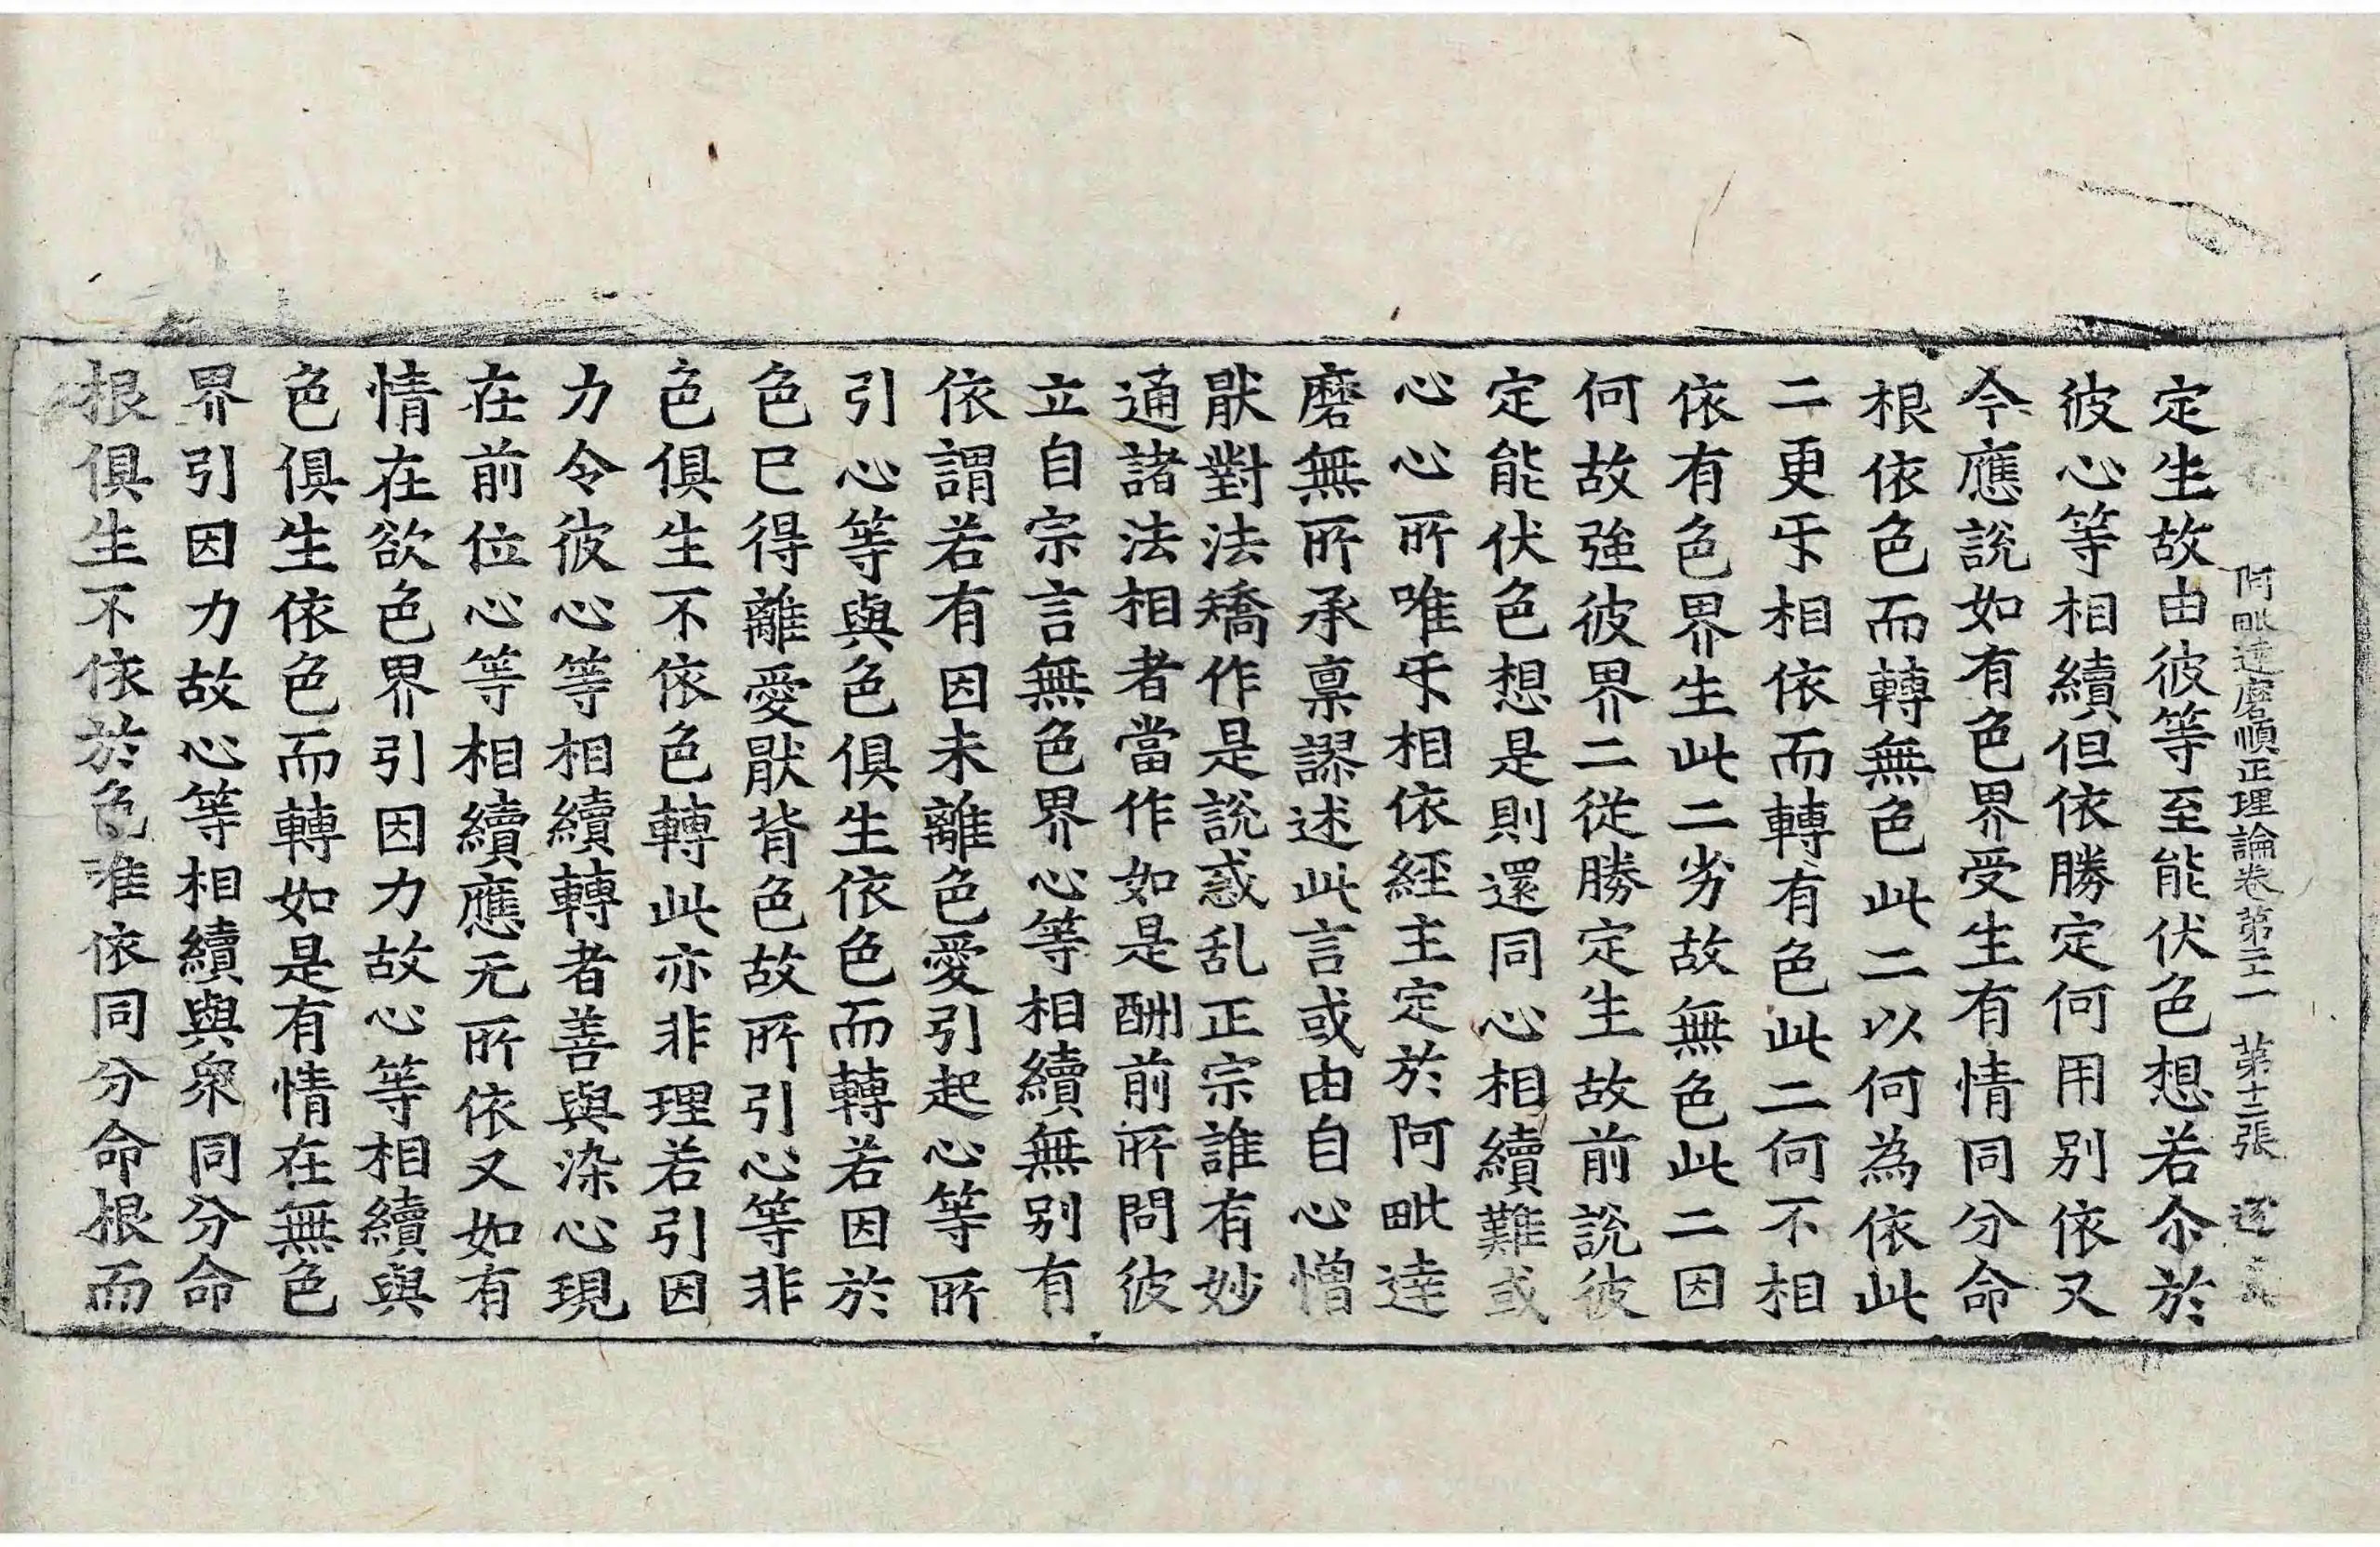 阿毗达磨順正理論卷第二十一 第十二張 逐
定生故由彼等至能伏色想若尒於
彼心等相續但依勝定何用别依又
今應說如有色界受生有情同分命
根依色而轉無色此二以何為依此
二更㸦相依而轉有色此二何不相
依有色界生此二劣故無色此二因
何故強彼界二從勝定生故前說彼
定能伏色想是則還同心相續難或
心心所唯㸦相依經主定於阿毗達
磨無所承禀謬述此言或由自心憎
猒對法矯作是說惑乱正宗誰有妙
通諸法相者當作如是酬前所問彼
立自宗言無色界心等相續無别有
依謂若有因未離色愛引起心等所
引心等與色俱生依色而轉若因於
色已得離愛猒背色故所引心等非
色俱生不依色轉此亦非理若引因
力令彼心等相續轉者善與染心現
在前位心等相續應无所依又如有
情在欲色界引因力故心等相續與
色俱生依色而轉如是有情在無色
界引因力故心等相續與衆同分命
根俱生不依於色唯依同分命根而